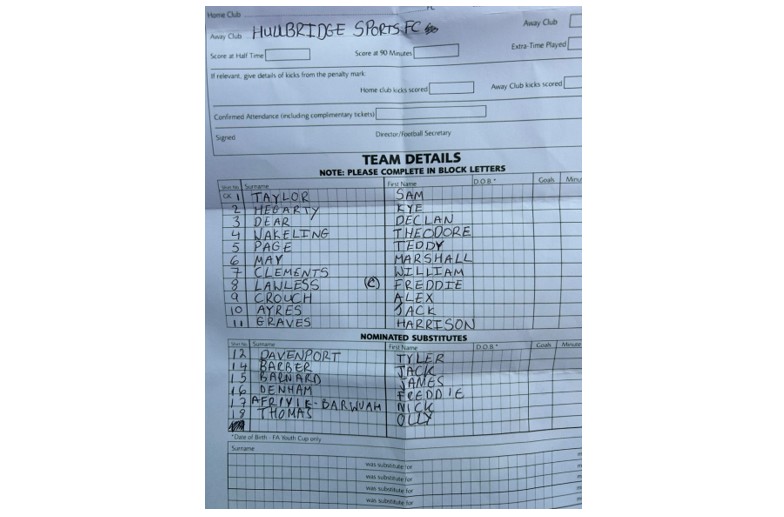 Home Club
Away Club HULLBRIDGE SPORTS FC Away Club
Score at Half Time Score at 90 Minutes Extra-Time Played
If relevant, give details of kicks from the penalty mark.
Home club kicks scored Away Club kicks scored
Confirmed Attendance (including complimentary tickets)
Signed Director/Football Secretary
TEAM DETAILS
NOTE: PLEASE COMPLETE IN BLOCK LETTERS
Shirt No. Surname First Name D.O.B.* Goals Minu
GK 1 TAYLOR SAM
2 HEGARTY KYE
3 DEAR DECLAN
4 WAKELING THEODORE
5 PAGE TEDDY
6 MAY MARSHALL
7 CLEMENTS WILLIAM
8 LAWLESS (C) FREDDIE
9 CROUCH ALEX
10 AYRES JACK
11 GRAVES HARRISON
NOMINATED SUBSTITUTES
Shirt No. Surname First Name D.O.B* Goals Minute
12 DAVENPORT TYLER
14 BARBER JACK
15 BARNARD JAMES
16 DENHAM FREDDIE
17 AFRIYIE-BARWUAH NICK
18 THOMAS OLLY
*Date of Birth - FA Youth Cup only
Surname
was substitute for
was substitute for
was substitute for
was substitute for